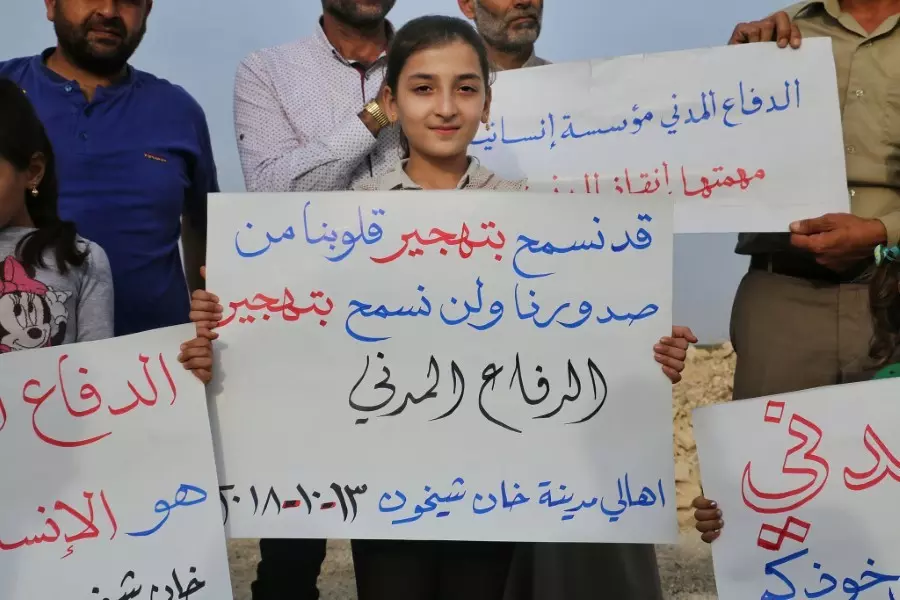 الدفاع المدني مؤسسة إنسانية
مهمتها إنقاذ
قد نسمح بتهجير قلوبنا من
صدورنا ولن نسمح بتهجير
الدفاع المدني
اهالي مدينة خان شيخون ١٣-١٠-٢٠١٨
الدفاع
هو
خان